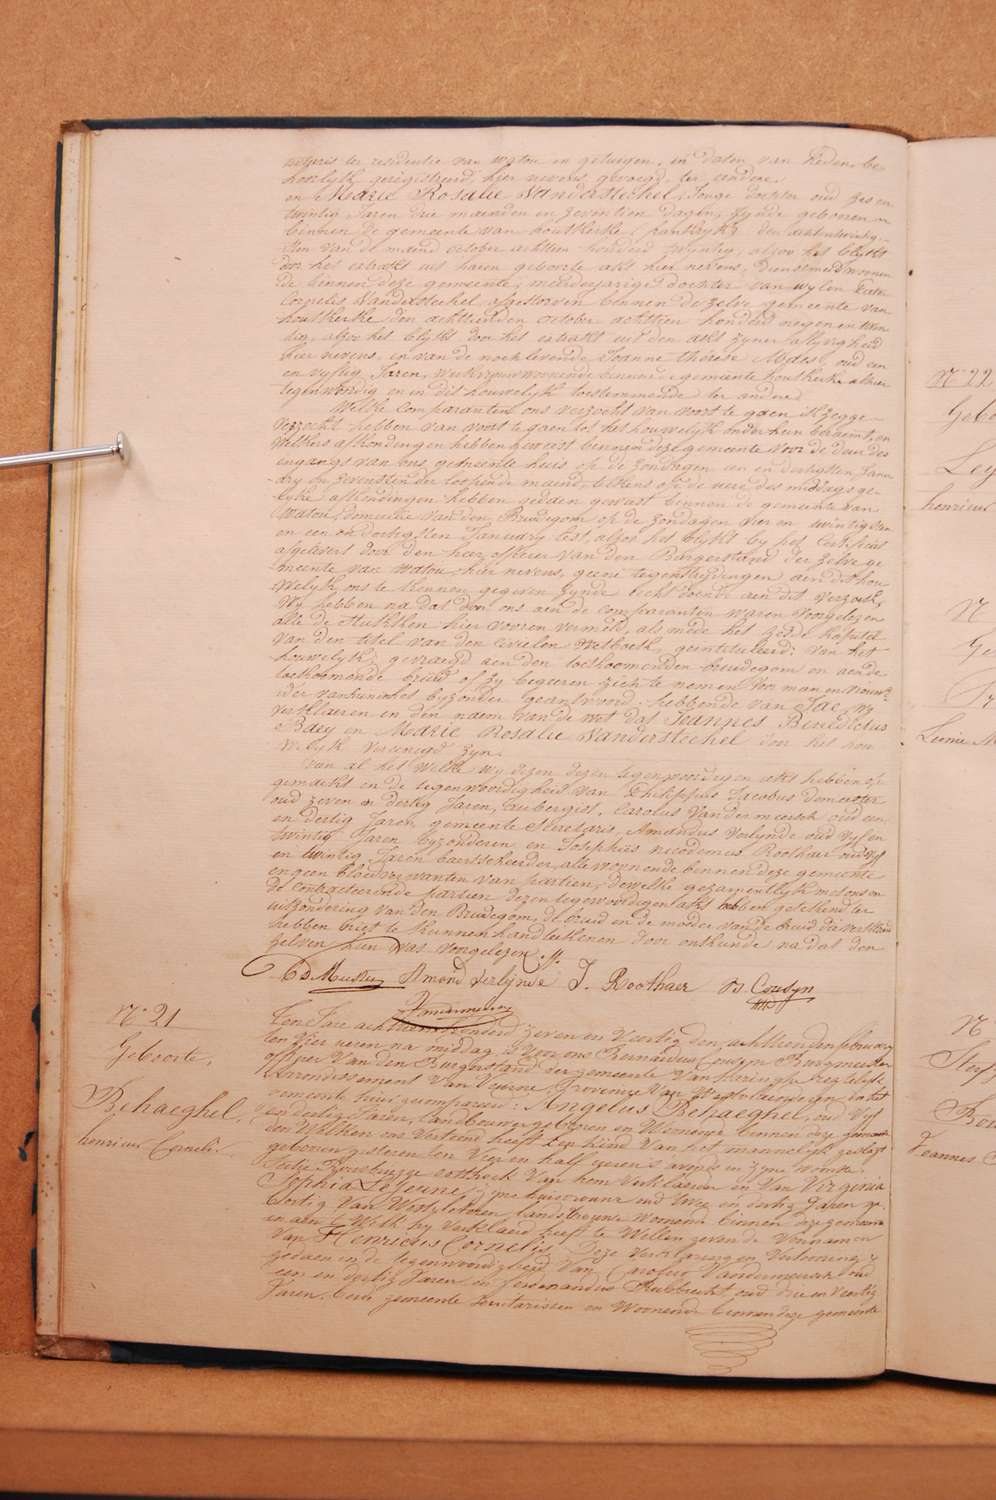 notaris ter residentie van watou en getuigen, in daten van heden, be
hoorlyk geregistreerd hier nevens gevoegd, ter eendere,
en Marie Rosalie Vanderstechel, Jonge dochter oud zes en
twintig Jaren drie maenden en zeventien dagen, zynde geboren
binnen de gemeente van houtkerke, frankryk, den
sten van de maend october achttien honderd twyntig, alzoo het blykt
door het extrakt uit haren geboorte akt hier nevens, dienstmeid woonen
de binnen deze gemeente, meerderjarige dochter van wylen Pieter
Cornelis Vanderstechel, afgestorven binnen de zelve gemeente van
houtkerke den achttienden October achttien honderd negen en twin
tig, alzoo het blykt door het extrakt uit den akt zyner aflyvigheid
hier nevens, en van de noch levende Joanne Thérèse Maes, oud een
en vyftig Jaren, werkvrouw woonende binnen de gemeente houtkerke alhier
tegenwoordig en in dit houwelyk toestemmende ter andere
Welke Comparanten ons verzocht van voort te gaen ik zegge
verzocht hebben van voort te gaen tot het houwelyk onder hun beraemt, en
welkers afkondingen hebben geweest binnen deze gemeente voor de deur des
ingangs van ons gemeente huis op de zondagen een en dertigsten Janu
ary en zevensten der loopende maend, telkens op de uere des middags ge
lyke afkondingen hebben gedaen geweest binnen de gemeente van
Watou, domicilie van den Bruidegom op de zondagen vier en twintig
en een en dertigsten January lest, alzoo het blykt by het Certificaet
afgelevert door den heer officier van den Burgerstand der zelve ge
meente van Watou, hier nevens, geene tegenstrydingen aen dit hou
welyk ons te kennen gegeven zynde recht doende aen dit verzoek,
Wy hebben na dat door ons aen de comparanten waren voorgelezen
alle de stukken hier vooren vermeld, als mede het zesde kapittel
van den titel van den civielen Wetboek, geintituleerd: Van het
houwelyk, gevraegd aen den toekoomenden bruidegom en aen de
toekoomende bruid of zy begeeren zich te nemen voor man en vrouw
ider van hun ons byzonder geantwoord hebbende van Jae, wy
verklaeren in den naem van de wet dat Joannes Benedictus
Baey en Marie Rosalie Vanderstechel door het hou
welyk vereenigd zyn.
Van al het welke wy dezen dezen tegenwoordigen akt hebben op
gemaekt in de tegenwoordigheid van Philippus Jacobus Demeester
oud zeven en dertig Jaren, aubergist, Carolus Vandermeersch oud een
en dertig Jaren gemeente Secretaris, Amandus Verlynde oud vyf en
twintig Jaren byzonderen en Josephus Nicodemus Roothaer oud vyf
en twintig Jaren baertscheerder, alle woonende binnen deze gemeente
en geen bloedverwanten van partien, dewelke gezamentlyk met ons en
de contracteerende partien dezen tegewoordigen akt hebben geteekend ter
uitzondering van den Bruidegom, de bruid en de moeder van de bruid die verklaerd
hebben niet te kunnen handteekenen door onkunde na dat door
gelezen hun was voorgelezen.
D. Meester Amand Verlynde J. Roothaer B. Cousyn
Vandermeersch
N.º 21
Geboorte,
Behaeghel,
henricus Cornelis
Ten Jare achttien honderd zeven en Veertig den achttienden february
ten vier ueren na middag, Voor ons Bernardus Cousyn Burgmeester
officier Van den Burgerstand der gemeente Van haringhe regtelyk
Arrondissement Van Veurne, Provincie Van West Vlaenderen, in het
gemeente huis gecompareerd: Angelus Behaeghel, oud Vyf
en dertig Jaren, landbouwer geboren en Woonende binnen deze gemeente
den Welken ons Vertoond heeft een kind Van het mannelyk geslagt
geboren gisteren en Vier en half ueren 's avonds in zyne Wooning
Julie Roesbrugge estaek Van hem Verklaerder en Van Virginia
Sophia Lejeune, zyne huisvrouw oud twee en dertig Jaren ge
boortig Van Westvleteren landbouwster Woonende binnen deze gemeente
en aen 't Welk hy Verklaerd heeft te Willen geven de Voornamen
Van Henricus Cornelis. Deze Verklaring en Vertooning
gedaen in de tegenwoordigheid Van Carolus Vandermeersch oud
een en dertig Jaren en Ferdinandus Rubbrecht oud drie en Veertig
Jaren, beide gemeente secretarissen en Woonende binnen deze gemeente
N.º 22
Gebo
Ley
henricus
N
Ge
Leonie M
N
Sterf
Joannes